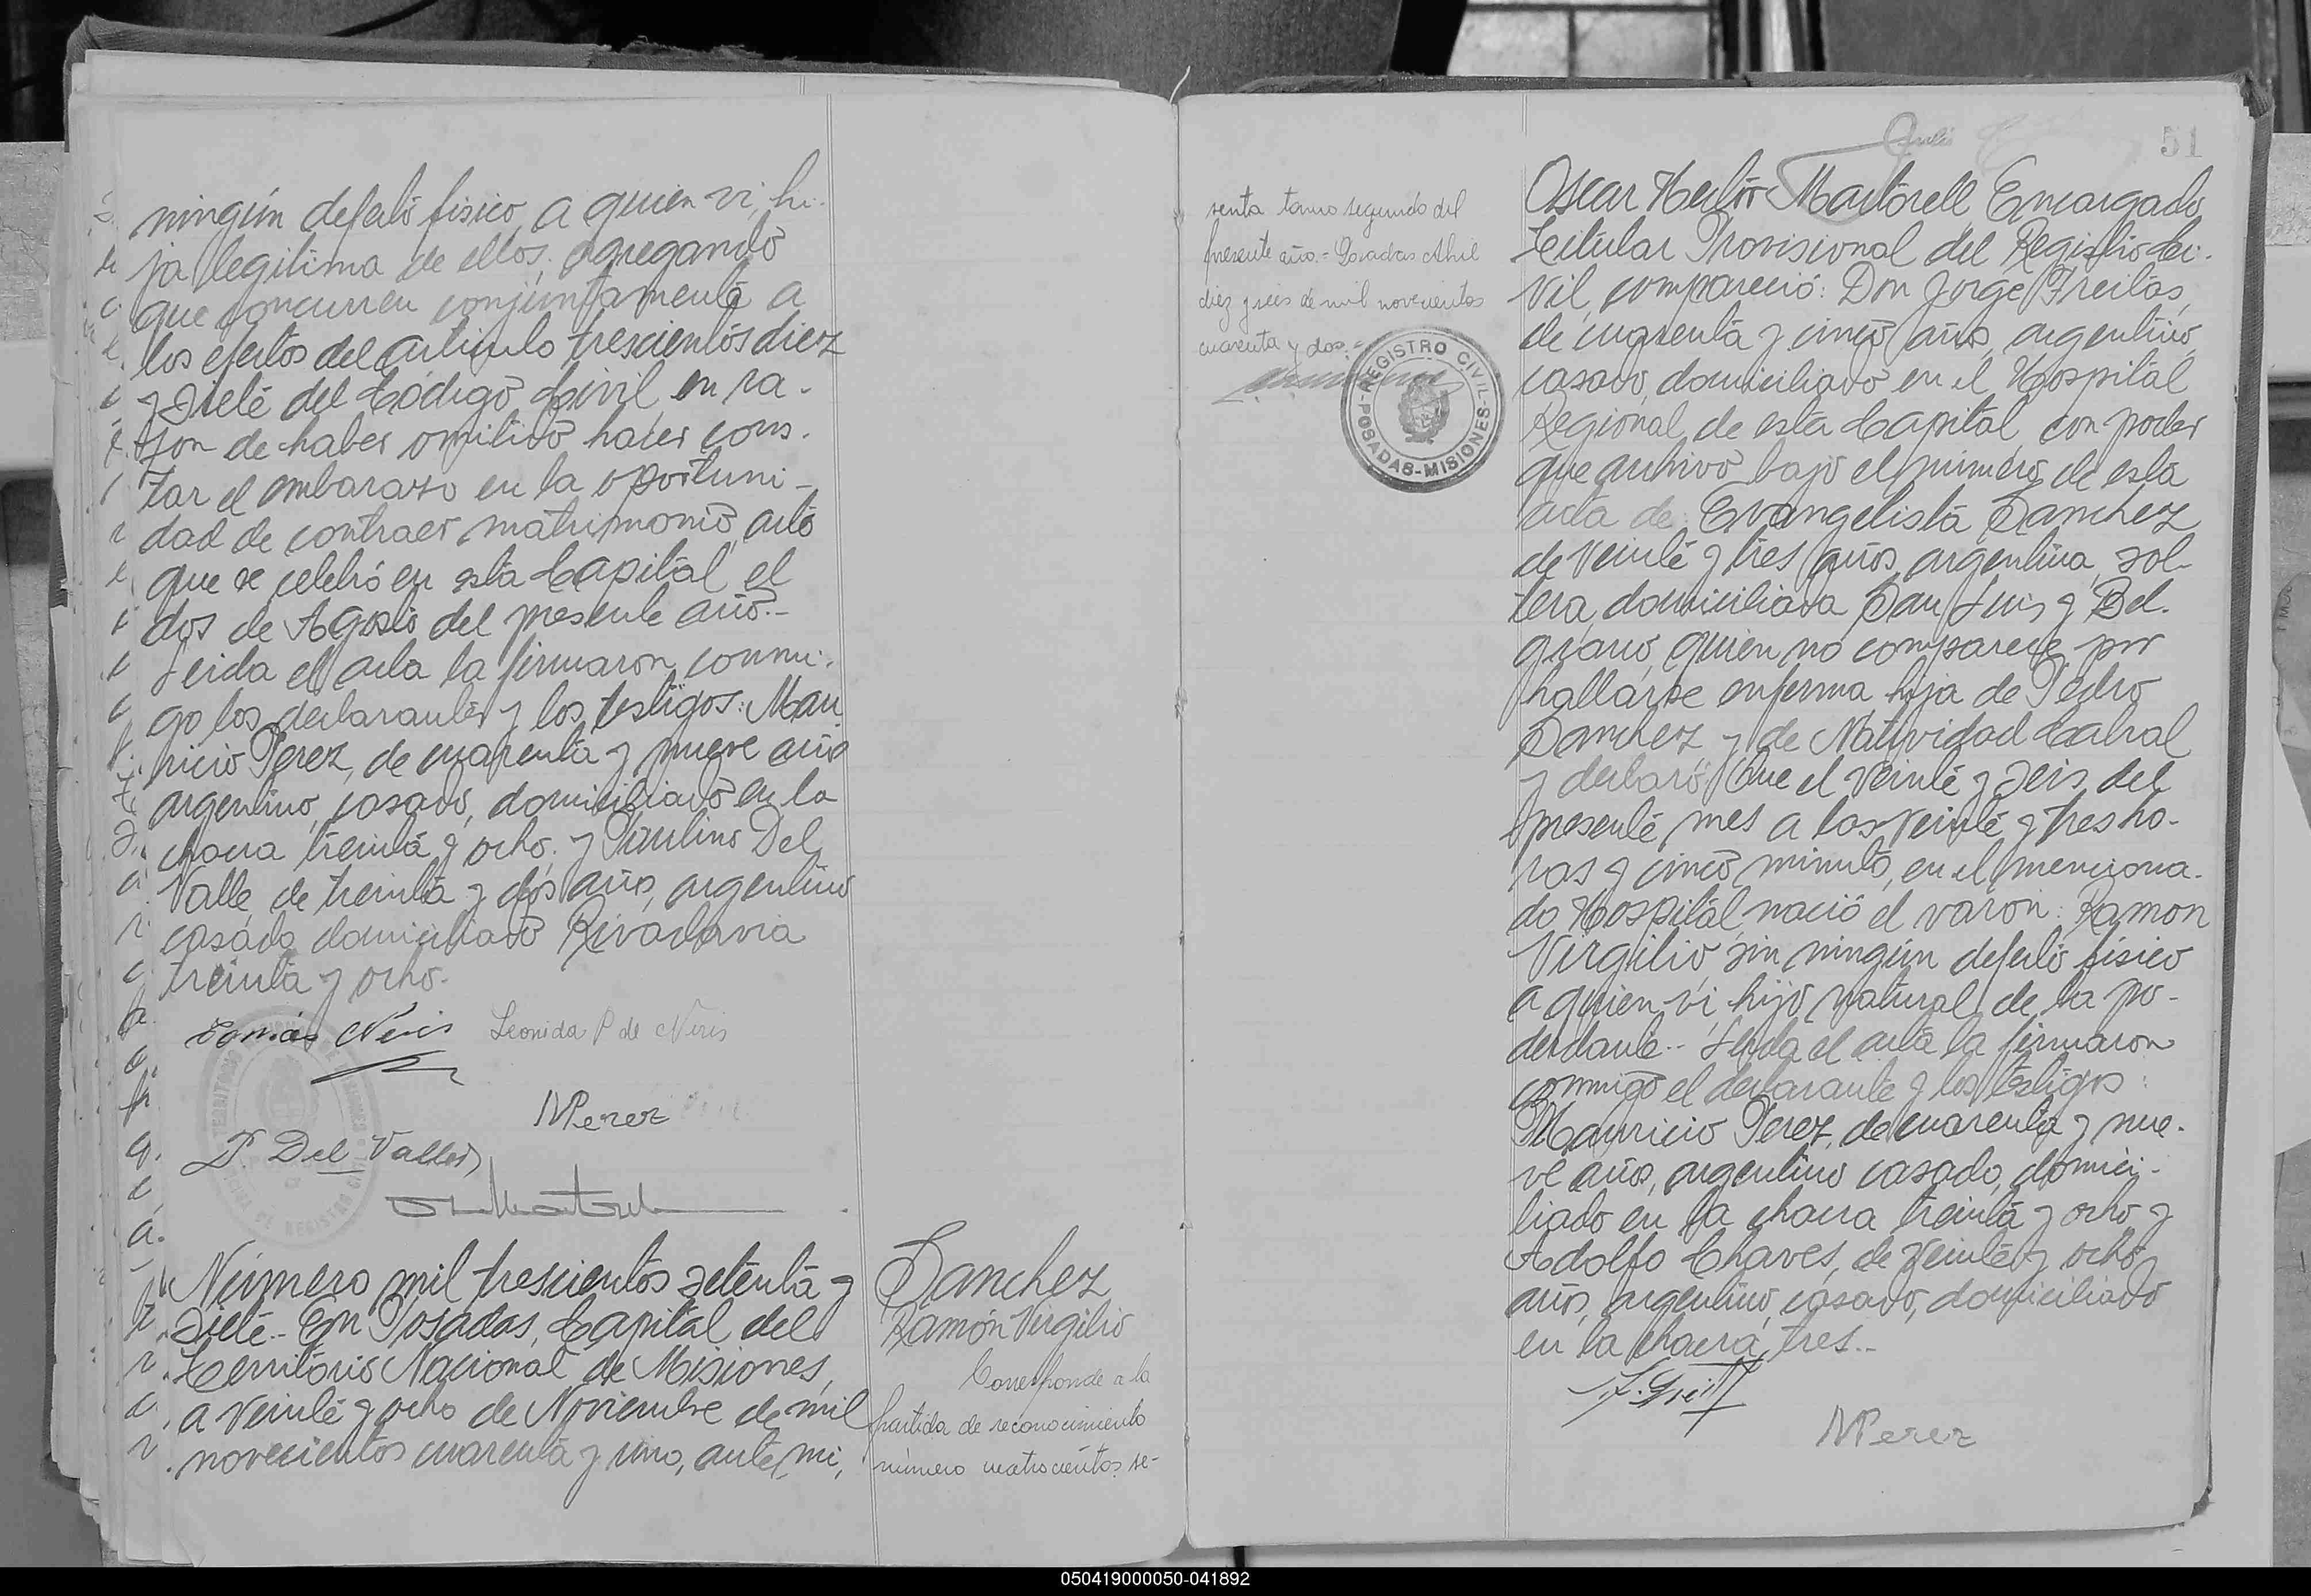 ningún defecto físico, a quien vi, hi-
ja legítima de ellos; agregando
que concurren conjuntamente a
los efectos del artículo trescientos diez
y siete del Código Civil, en ra-
zon de haber omitido hacer cons-
tar el embarazo en la oportuni-
dad de contraer matrimonio, acto
que se celebró en esta Capital el
dos de Agosto del presente año.-
Leida el acta la firmaron conmi-
go los declarantes y los testigos: Mau
ricio Perez, de cuarenta y nueve años
argentino, casado, domiciliado en la
chacra treinta y ocho; y Paulino Del
Valle, de treinta y dos años, argentino
casado domiciliado Rivadavia
treinta y ocho.
Tomás Neris Leonida P de Neris
MPerez
P. Del Valle
Número mil trescientos setenta y
siete.- En Posadas, Capital del
Territorio Nacional de Misiones,
a veinte y ocho de Noviembre de mil
novecientos cuarenta y uno, ante mi,
Sanchez
Ramón Virgilio
Corresponde a la
partida de reconocimiento
número cuatrocientos se-
senta tomo segundo del
presente año.= Posadas Abril
diez y seis de mil novecientos
cuarenta y dos.=
REGISTRO CIVIL
POSADAS-MISIONES
51
Oscar Hector Martorell Encargado
Titular Provisional del Registro Ci-
vil, compareció: Don Jorge Freitas,
de cuarenta y cinco años, argentino,
casado, domiciliado en el Hospital
Regional de esta Capital, con poder
que archivo bajo el número de esta
acta de Evangelista Sanchez
de veinte y tres años, argentina, sol-
tera, domiciliada San Luis y Bel-
grano, quien no comparece por
hallarse enferma hija de Pedro
Sanchez y de Natividad Cabral
y declaró: Que el veinte y seis del
presente mes a las veinte y tres ho-
ras y cinco minuto, en el menciona-
do Hospital, nació el varon: Ramon
Virgilio, sin ningún defecto físico
a quien vi, hijo natural de la po-
derdante.- Leida el acta la firmaron
conmigo el declarante y los testigos:
Mauricio Perez, de cuarenta y nue-
ve años, argentino casado, domici-
liado en la chacra treinta y ocho y
Adolfo Chaves, de veinte y ocho
años, argentino, casado, domiciliado
en la chacra tres.-
MPerez
050419000050-041892